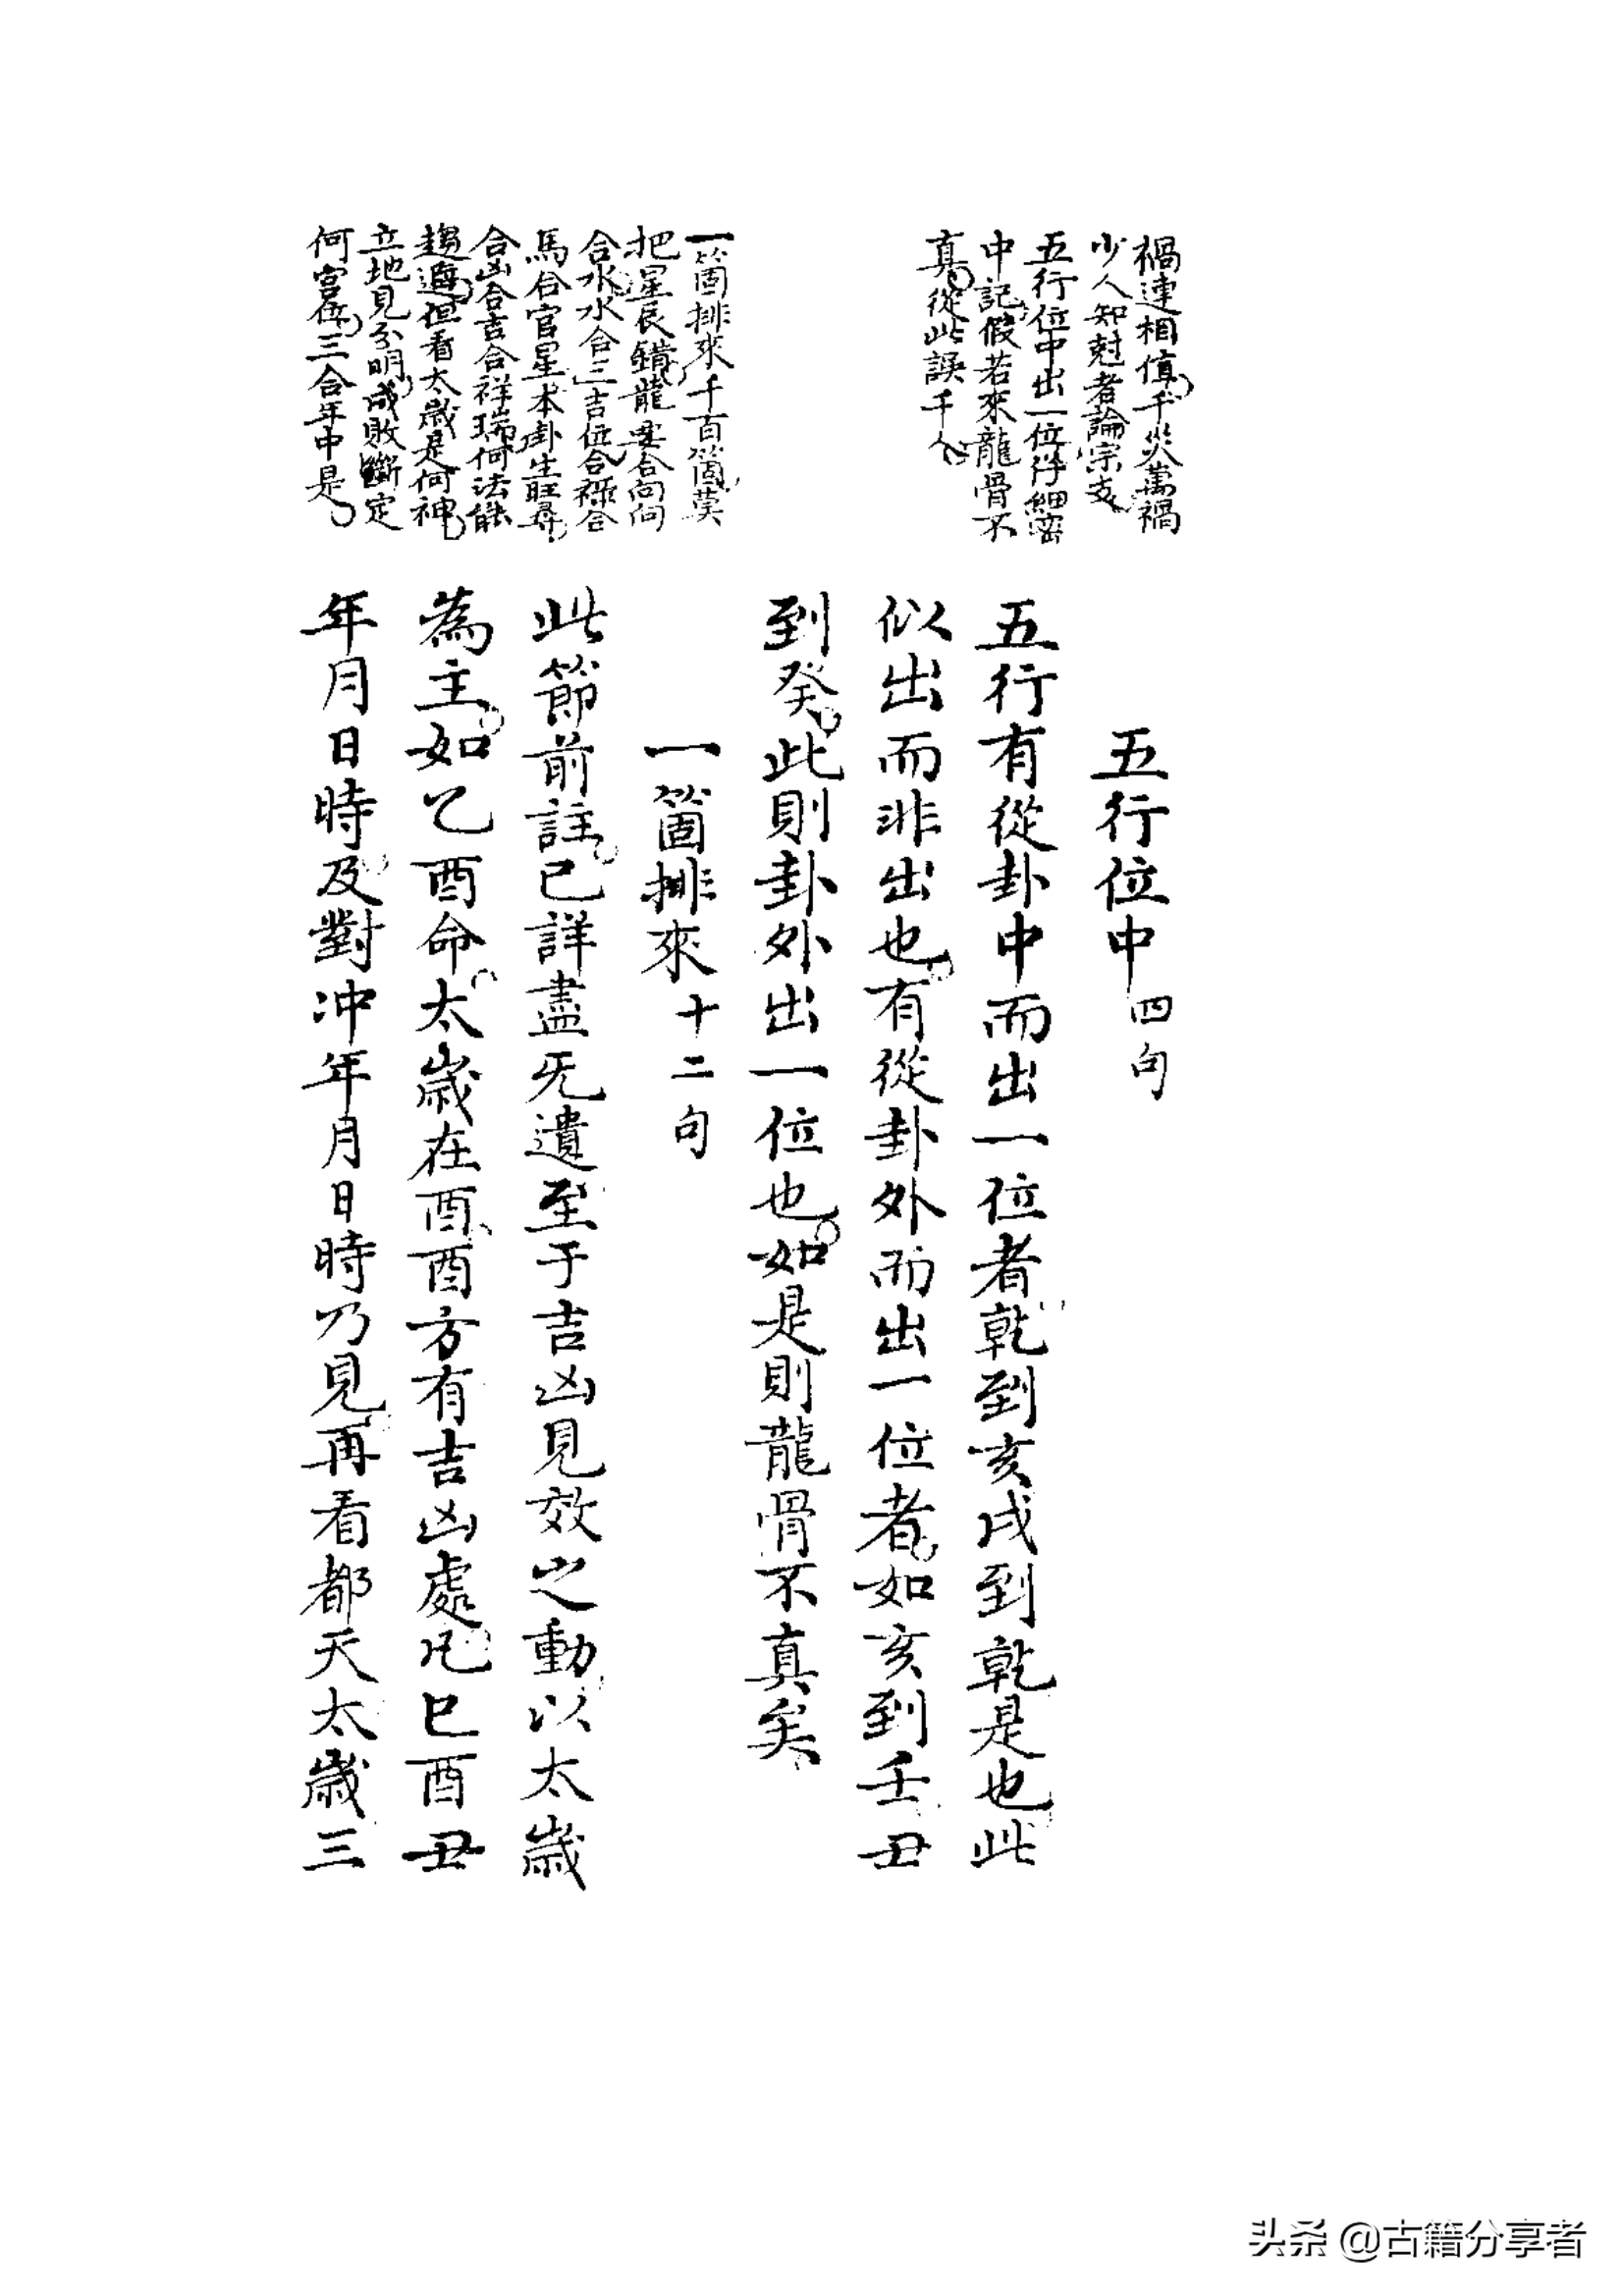 禍連相值千災萬禍
少人知尅者論宗支
五行位中出一位仔細密
中記假若來龍骨不
真從此誤千人
一箇排來千百箇莫
把星辰錯龍要合向向
合水水合三吉位合祿合
馬合官星本卦生旺尋
合凶合吉合祥瑞何法能
趨避但看太歲是何神
立地見分明成敗斷定
何宮位三合年中是
五行位中四句
五行有從卦中而出一位者乾到亥戌到乾是也此
似出而非出也有從卦外而出一位者如亥到壬丑
到癸此則卦外出一位也如是則龍骨不真矣
一箇排來十二句
此節前註已詳盡旡遺至于吉凶見效之動以太歲
為主如乙酉命太歲在酉酉方有吉凶處凡巳酉丑
年月日時及對冲年月日時乃見再看都天太歲三
头条 @古籍分享者